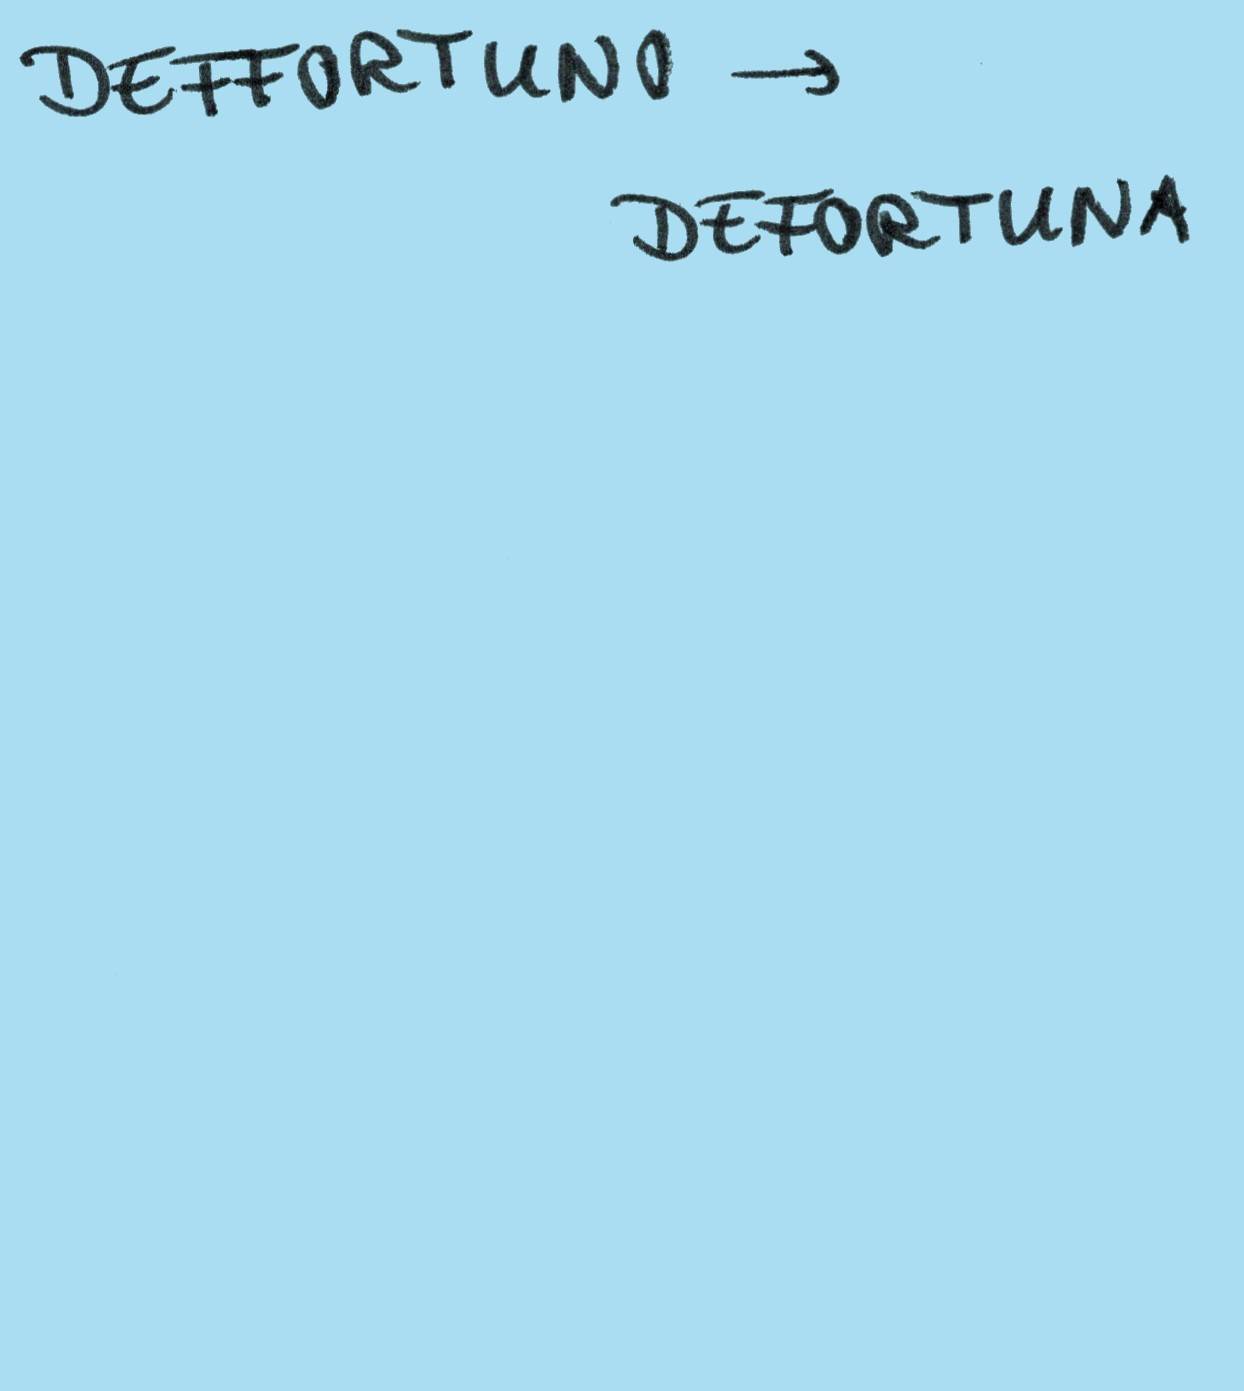 DEFFORTUNO →
DEFORTUNA